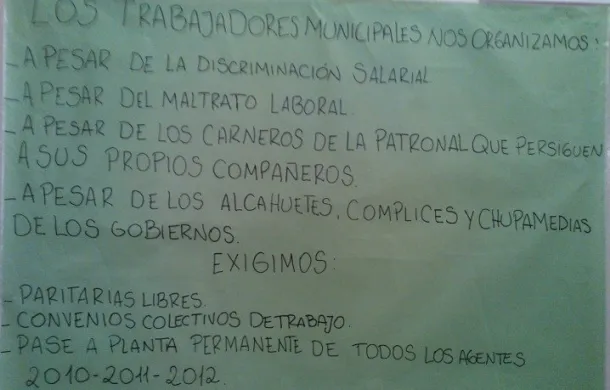 LOS TRABAJADORES MUNICIPALES NOS ORGANIZAMOS:
- A PESAR DE LA DISCRIMINACIÓN SALARIAL
- A PESAR DEL MALTRATO LABORAL.
- A PESAR DE LOS CARNEROS DE LA PATRONAL QUE PERSIGUEN
A SUS PROPIOS COMPAÑEROS.
- A PESAR DE LOS ALCAHUETES, COMPLICES Y CHUPAMEDIAS
DE LOS GOBIERNOS.
EXIGIMOS:
- PARITARIAS LIBRES.
- CONVENIOS COLECTIVOS DE TRABAJO.
- PASE A PLANTA PERMANENTE DE TODOS LOS AGENTES
2010-2011-2012.